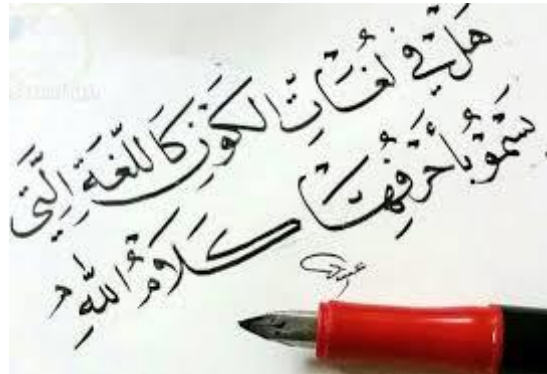 هَلْ فِي لُغَاتِ الكَوْنِ كَاللُّغَةِ الَّتِي
سَمَوْا بِأَحْرُفِهَا كَلَامُ اللهِ